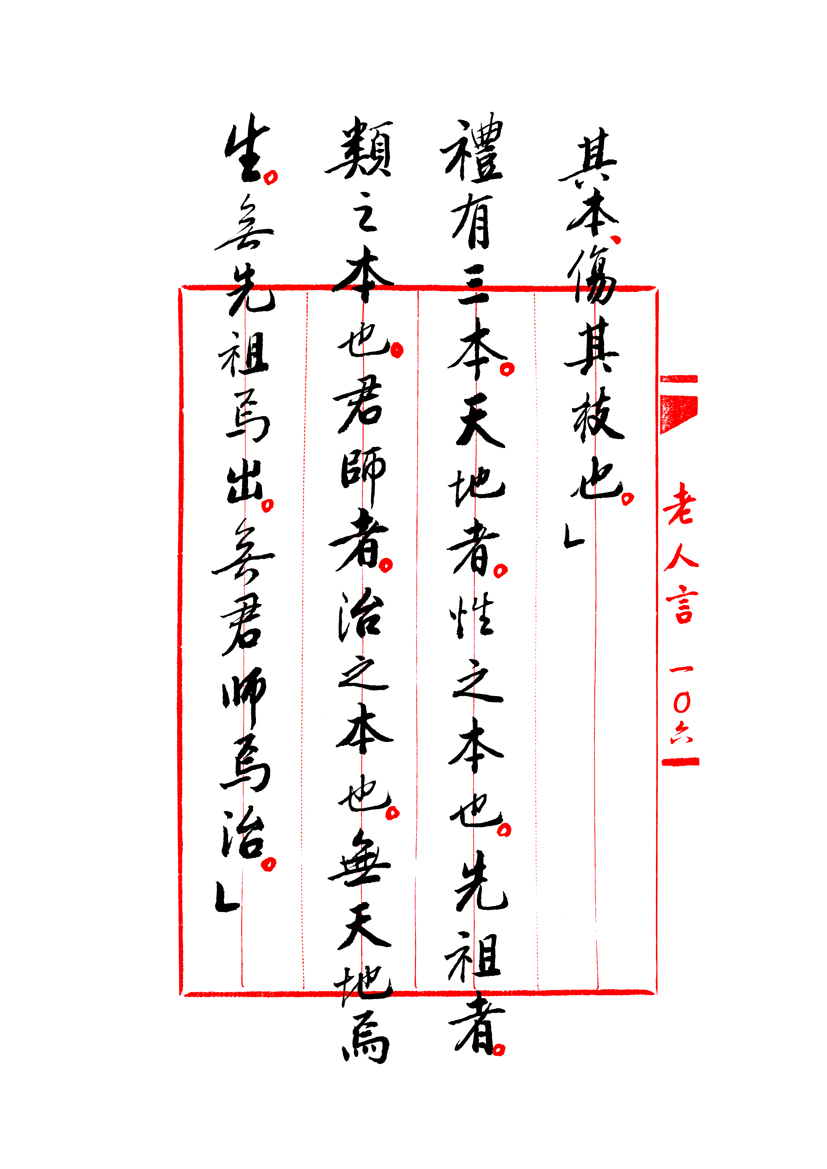 其本、傷其枝也。」
禮有三本。天地者。性之本也。先祖者。
類之本也。君師者。治之本也。無天地焉
生。無先祖焉出。無君师焉治。」
老人言 一〇六